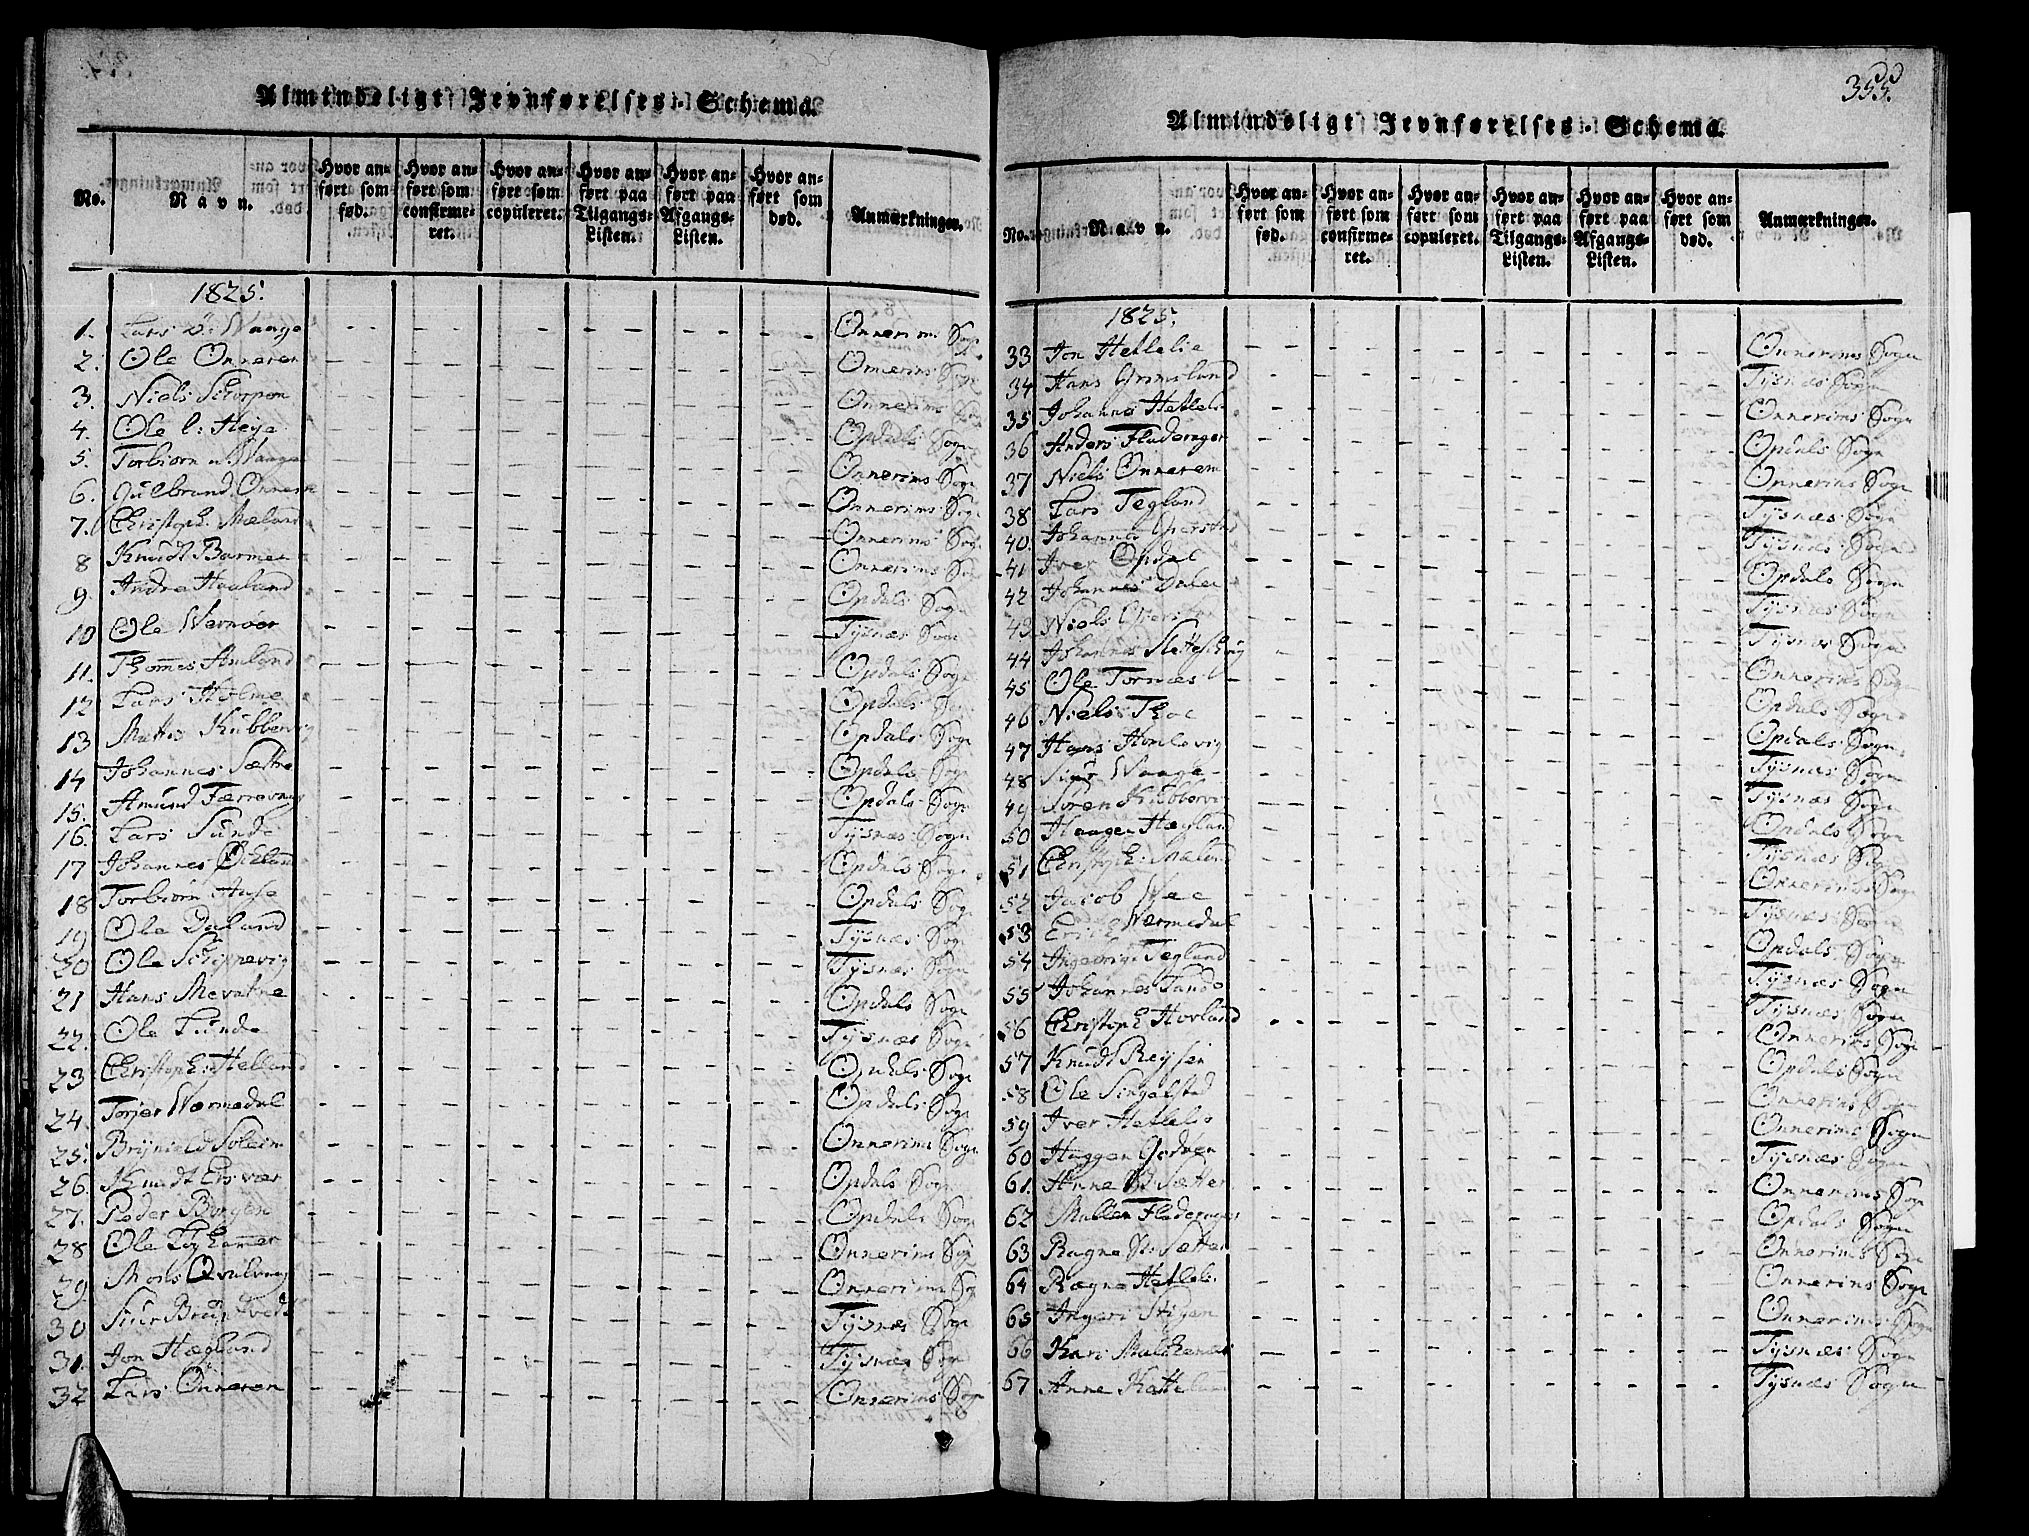 Almindeligt Jevnførelses-Schema.
No. Navn. Hvor anført som fød. Hvor anført som confirmeret. Hvor anført som copuleret. Hvor anført paa Tilgangs-Listen. Hvor anført paa Afgangs-Listen. Hvor anført som død. Anmærkninger.
1825.
1. Lars Waage - - - - - - Onnerims Sogn
2. Ole Onnerem - - - - - - Onnerims Sogn
3. Niels Skorpen - - - - - - Onnerims Sogn
4. Ole Heije - - - - - - Opdals Sogn
5. Torbiørn Waage - - - - - - Onnerims Sogn
6. Gulbrand Onnerem - - - - - - Onnerims Sogn
7. Christoph. Mæland - - - - - - Onnerims Sogn
8 Knudt Barmen - - - - - - Onnerims Sogn
9. Andre Haaland - - - - - - Opdals Sogn
10 Ole Wernøer - - - - - - Tysnæs Sogn
11. Thomes - - - - - - Opdals Sogn
12 Lars Holme - - - - - - Opdals Sogn
13 Kubbervig - - - - - - Opdals Sogn
14 Johannes Sættre - - - - - - Opdals Sogn
15. Amund Færrevaag - - - - - - Opdals Sogn
16. Lars Sunde - - - - - - Tysnæs Sogn
17 Johannes - - - - - - Opdals Sogn
18 Torbiørn - - - - - - Opdals Sogn
19 Ole Daland - - - - - - Tysnæs Sogn
20 Ole Skippevig - - - - - - Tysnæs Sogn
21 Hans Mevatne - - - - - - Opdals Sogn
22. Ole Sunde - - - - - - Tysnæs Sogn
23 Christoph. Helland - - - - - - Opdals Sogn
24. Torjer Wermedal - - - - - - Opdals Sogn
25. Brynield Soleim - - - - - - Onnerims Sogn
26. Knudt Ersvær - - - - - - Opdals Sogn
27. Peder Borgen - - - - - - Opdals Sogn
28 Ole - - - - - - Onnerims Sogn
29 Mons - - - - - - Onnerims Sogn
30 Siur Bruntvedt - - - - - - Tysnæs Sogn
31. Jon Hægland - - - - - - Tysnæs Sogn
32 Lars Onnerem - - - - - - Onnerims Sogn
355.
Almindeligt Jevnførelses-Schema.
No. Navn. Hvor anført som fød. Hvor anført som confirmeret. Hvor anført som copuleret. Hvor anført paa Tilgangs-Listen. Hvor anført paa Afgangs-Listen. Hvor anført som død. Anmærkninger.
1825.
33 Jon Hetlelie - - - - - - Onnerims Sogn
34 Hans Grimsland - - - - - - Tysnæs Sogn
35 Johannes Hetlelie - - - - - - Onnerims Sogn
36 Anders Fladerager - - - - - - Opdals Sogn
37 Niels Onnerem - - - - - - Onnerims Sogn
38 Lars Tegland - - - - - - Tysnæs Sogn
40. Johannes Gierstad - - - - - - Tysnæs Sogn
41 Iver Opdal - - - - - - Opdals Sogn
42 Johannes Dalen - - - - - - Tysnæs Sogn
43 Niels - - - - - - Tysnæs Sogn
44 Johannes - - - - - - Onnerims Sogn
45 Ole Tornæs - - - - - - Opdals Sogn
46 Niels Thoe - - - - - - Opdals Sogn
47 Hans - - - - - - Tysnæs Sogn
48 Siur Waage - - - - - - Tysnæs Sogn
49 Søren Kubbervig - - - - - - Opdals Sogn
50 Haagen Hægland - - - - - - Tysnæs Sogn
51 Christoph. Mæland - - - - - - Onnerims Sogn
52 Jacob Wee - - - - - - Tysnæs Sogn
53 Erich Wermedal - - - - - - Opdals Sogn
54 Ingebrigt Tegland - - - - - - Tysnæs Sogn
55 Johannes - - - - - - Tysnæs Sogn
56 Christoph. Hovland - - - - - - Onnerims Sogn
57 Knudt Reysen - - - - - - Opdals Sogn
58 Ole Singelstad - - - - - - Onnerims Sogn
59 Iver Hetlelie - - - - - - Onnerims Sogn
60 Haggen Godøen - - - - - - Tysnæs Sogn
61. Anne Sætter - - - - - - Onnerims Sogn
62 Fladerager - - - - - - Opdals Sogn
63 Ragne Sætter - - - - - - Onnerims Sogn
64 Ragne Hetlelie - - - - - - Onnerims Sogn
65 Ingeri Stigen - - - - - - Onnerims Sogn
66 Kari - - - - - - Tysnæs Sogn
67 Anne - - - - - - Tysnæs Sogn